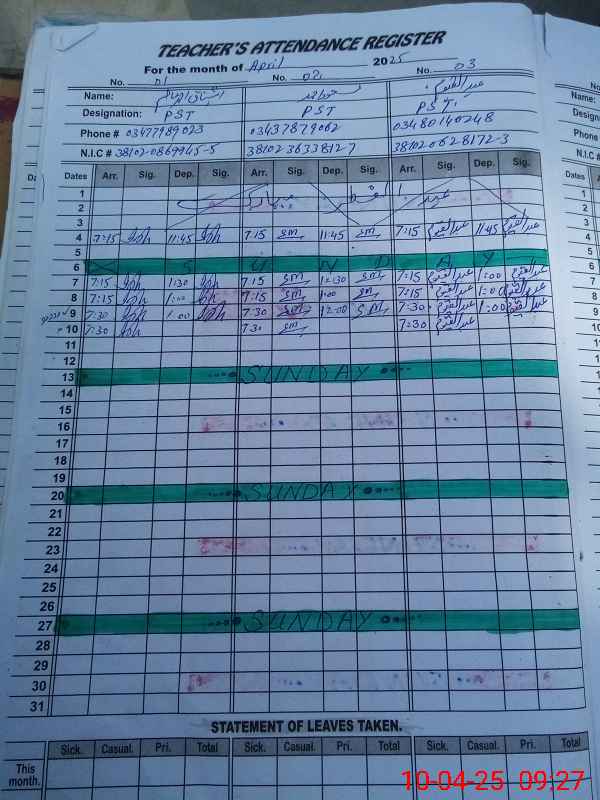 TEACHER'S ATTENDANCE REGISTER
For the month of April 2025
No. 01 No. 02 No. 03
Name: عبدالقیوم
Designation: PST PST PST.
Phone # 03477989023 03437879062 03480140248
N.I.C # 38102-0869945-5 3810236338127 381020628172-3
Dates Arr. Sig. Dep. Sig. Arr. Sig. Dep. Sig. Arr. Sig. Dep. Sig.
1
2
3
4 7:15 11:45 7:15 SM 11:45 SM 7:15 عبدالقیوم 11:45 عبدالقیوم
5
6 SUNDAY
7 7:15 1:30 7:15 SM 12:30 SM 7:15 عبدالقیوم 1:00 عبدالقیوم
8 7:15 1:00 7:15 SM 1:00 SM 7:15 عبدالقیوم 1:00 عبدالقیوم
9 7:30 1:00 7:30 SM 12:00 SM 7:30 عبدالقیوم 1:00 عبدالقیوم
10 7:30 7:30 SM 7:30 عبدالقیوم
11
12
13 SUNDAY
14
15
16
17
18
19
20 SUNDAY
21
22
23
24
25
26
27 SUNDAY
28
29
30
31
STATEMENT OF LEAVES TAKEN.
Sick. Casual. Pri. Total Sick. Casual. Pri. Total Sick. Casual. Pri. Total
This month.
10-04-25 09:27